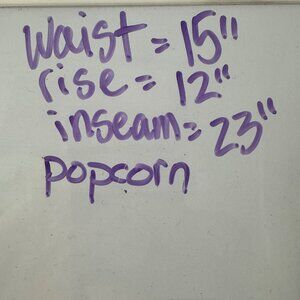 Waist = 15"
rise = 12"
inseam = 23"
popcorn